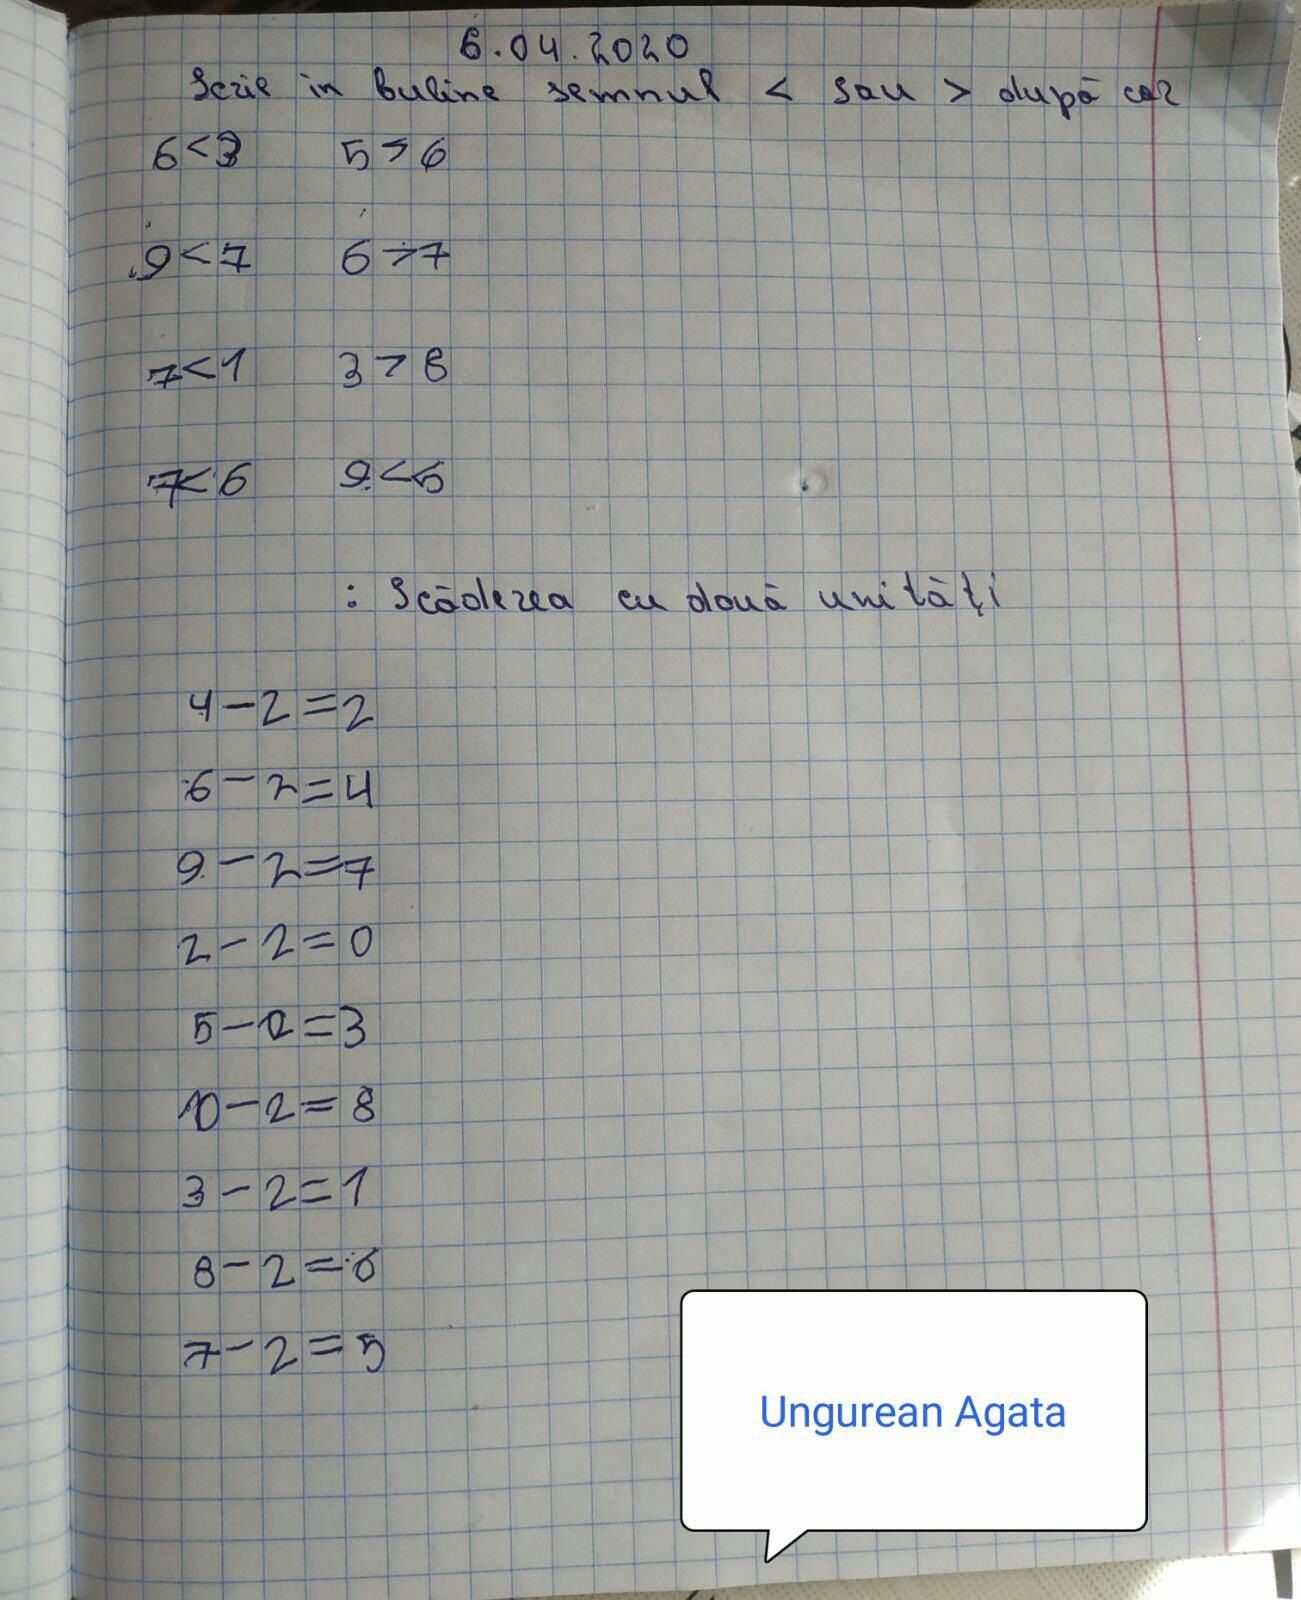 6.04.2020
Scrie in buline semnul < sau > după caz
6<3 5>6
9<7 6>7
7<1 3>8
7<6 9<5
: Scăderea cu două unități
4-2=2
6-2=4
9-2=7
2-2=0
5-2=3
10-2=8
3-2=1
8-2=6
7-2=5
Ungurean Agata